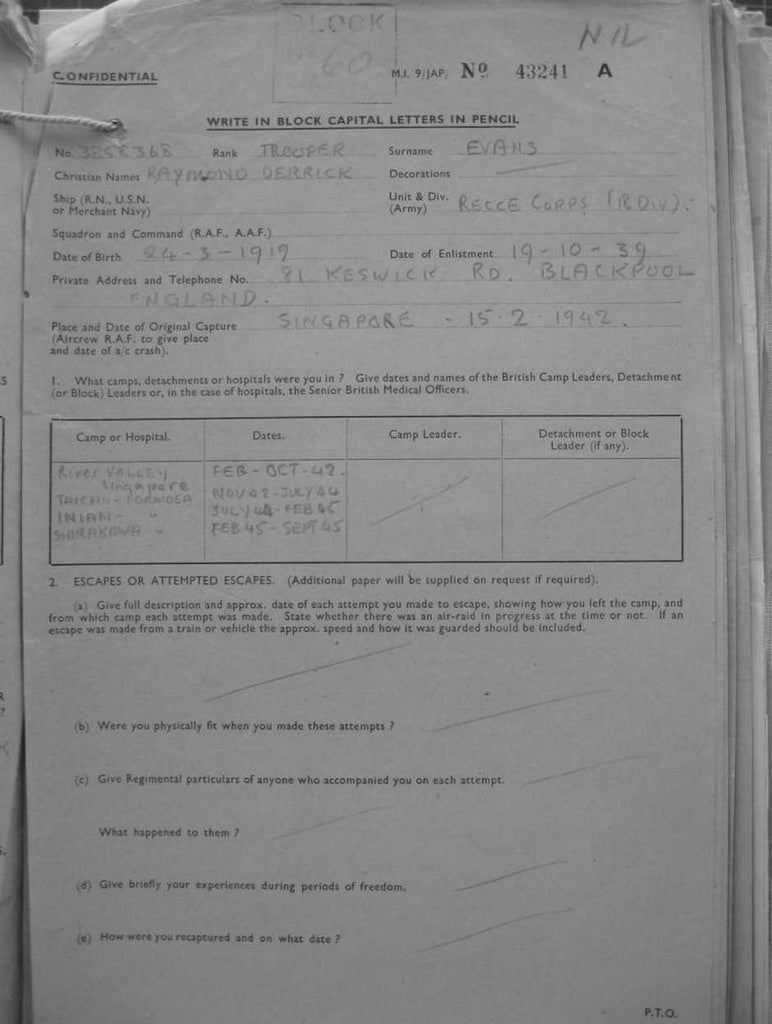 BLOCK
No 60
NIL
CONFIDENTIAL
M.I. 9/JAP. No 43241 A
WRITE IN BLOCK CAPITAL LETTERS IN PENCIL
No. 3858368 Rank TROOPER Surname EVANS
Christian Names RAYMOND DERRICK Decorations
Ship (R.N., U.S.N. or Merchant Navy)
Unit & Div. (Army) RECCE CORPS (18 DIV).
Squadron and Command (R.A.F., A.A.F.)
Date of Birth 24-3-1919 Date of Enlistment 19-10-39
Private Address and Telephone No. 81 KESWICK RD. BLACKPOOL
ENGLAND.
Place and Date of Original Capture SINGAPORE - 15-2-1942.
(Aircrew R.A.F. to give place
and date of a/c crash).
1. What camps, detachments or hospitals were you in ? Give dates and names of the British Camp Leaders, Detachment
(or Block) Leaders or, in the case of hospitals, the Senior British Medical Officers.
Camp or Hospital. Dates. Camp Leader. Detachment or Block Leader (if any).
River VALLEY FEB - OCT-42.
Singapore
TAICHU - FORMOSA NOV 42 - JULY 44
INIAM - " JULY 44 - FEB 45
SHIRAKAWA " FEB 45 - SEPT 45
2. ESCAPES OR ATTEMPTED ESCAPES. (Additional paper will be supplied on request if required).
(a) Give full description and approx. date of each attempt you made to escape, showing how you left the camp, and
from which camp each attempt was made. State whether there was an air-raid in progress at the time or not. If an
escape was made from a train or vehicle the approx. speed and how it was guarded should be included.
(b) Were you physically fit when you made these attempts ?
(c) Give Regimental particulars of anyone who accompanied you on each attempt.
What happened to them ?
(d) Give briefly your experiences during periods of freedom.
(e) How were you recaptured and on what date ?
P.T.O.